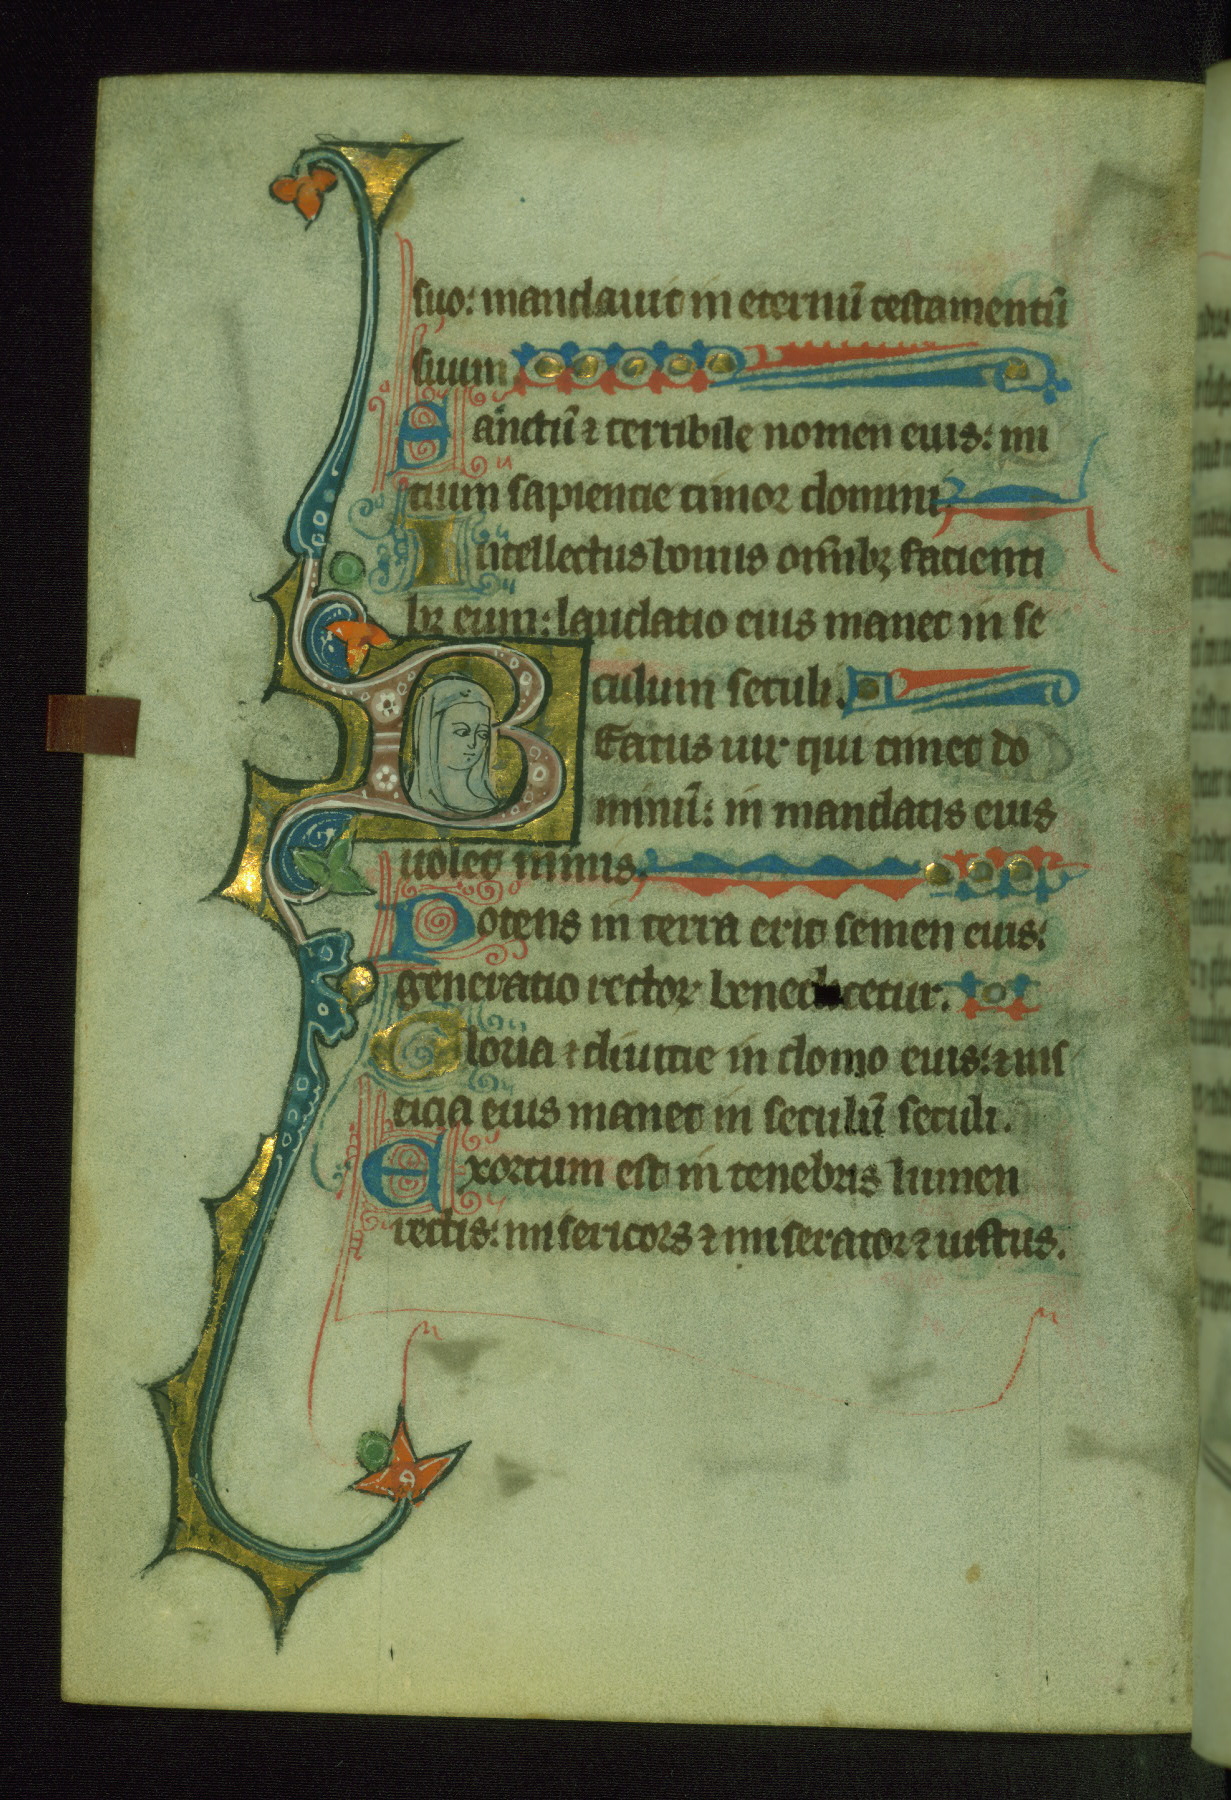 suo: mandauit in eternū testamentū
suum
Sanctū ⁊ terribile nomen eius: ini
tium sapientie timor domini
Intellectus bonus omībꝫ facienti
bꝫ eum: laudatio eius manet in se
culum seculi.
Beatus uir qui timet do
minū: in mandatis eius
uolet nimis
Potens in terra erit semen eius:
generatio rector benedicetur.
Gloria ⁊ diuitie in domo eius: ⁊ ius
ticia eius manet in seculū seculi.
Exortum est in tenebris lumen
rectis: misericors ⁊ miserator ⁊ iustus.